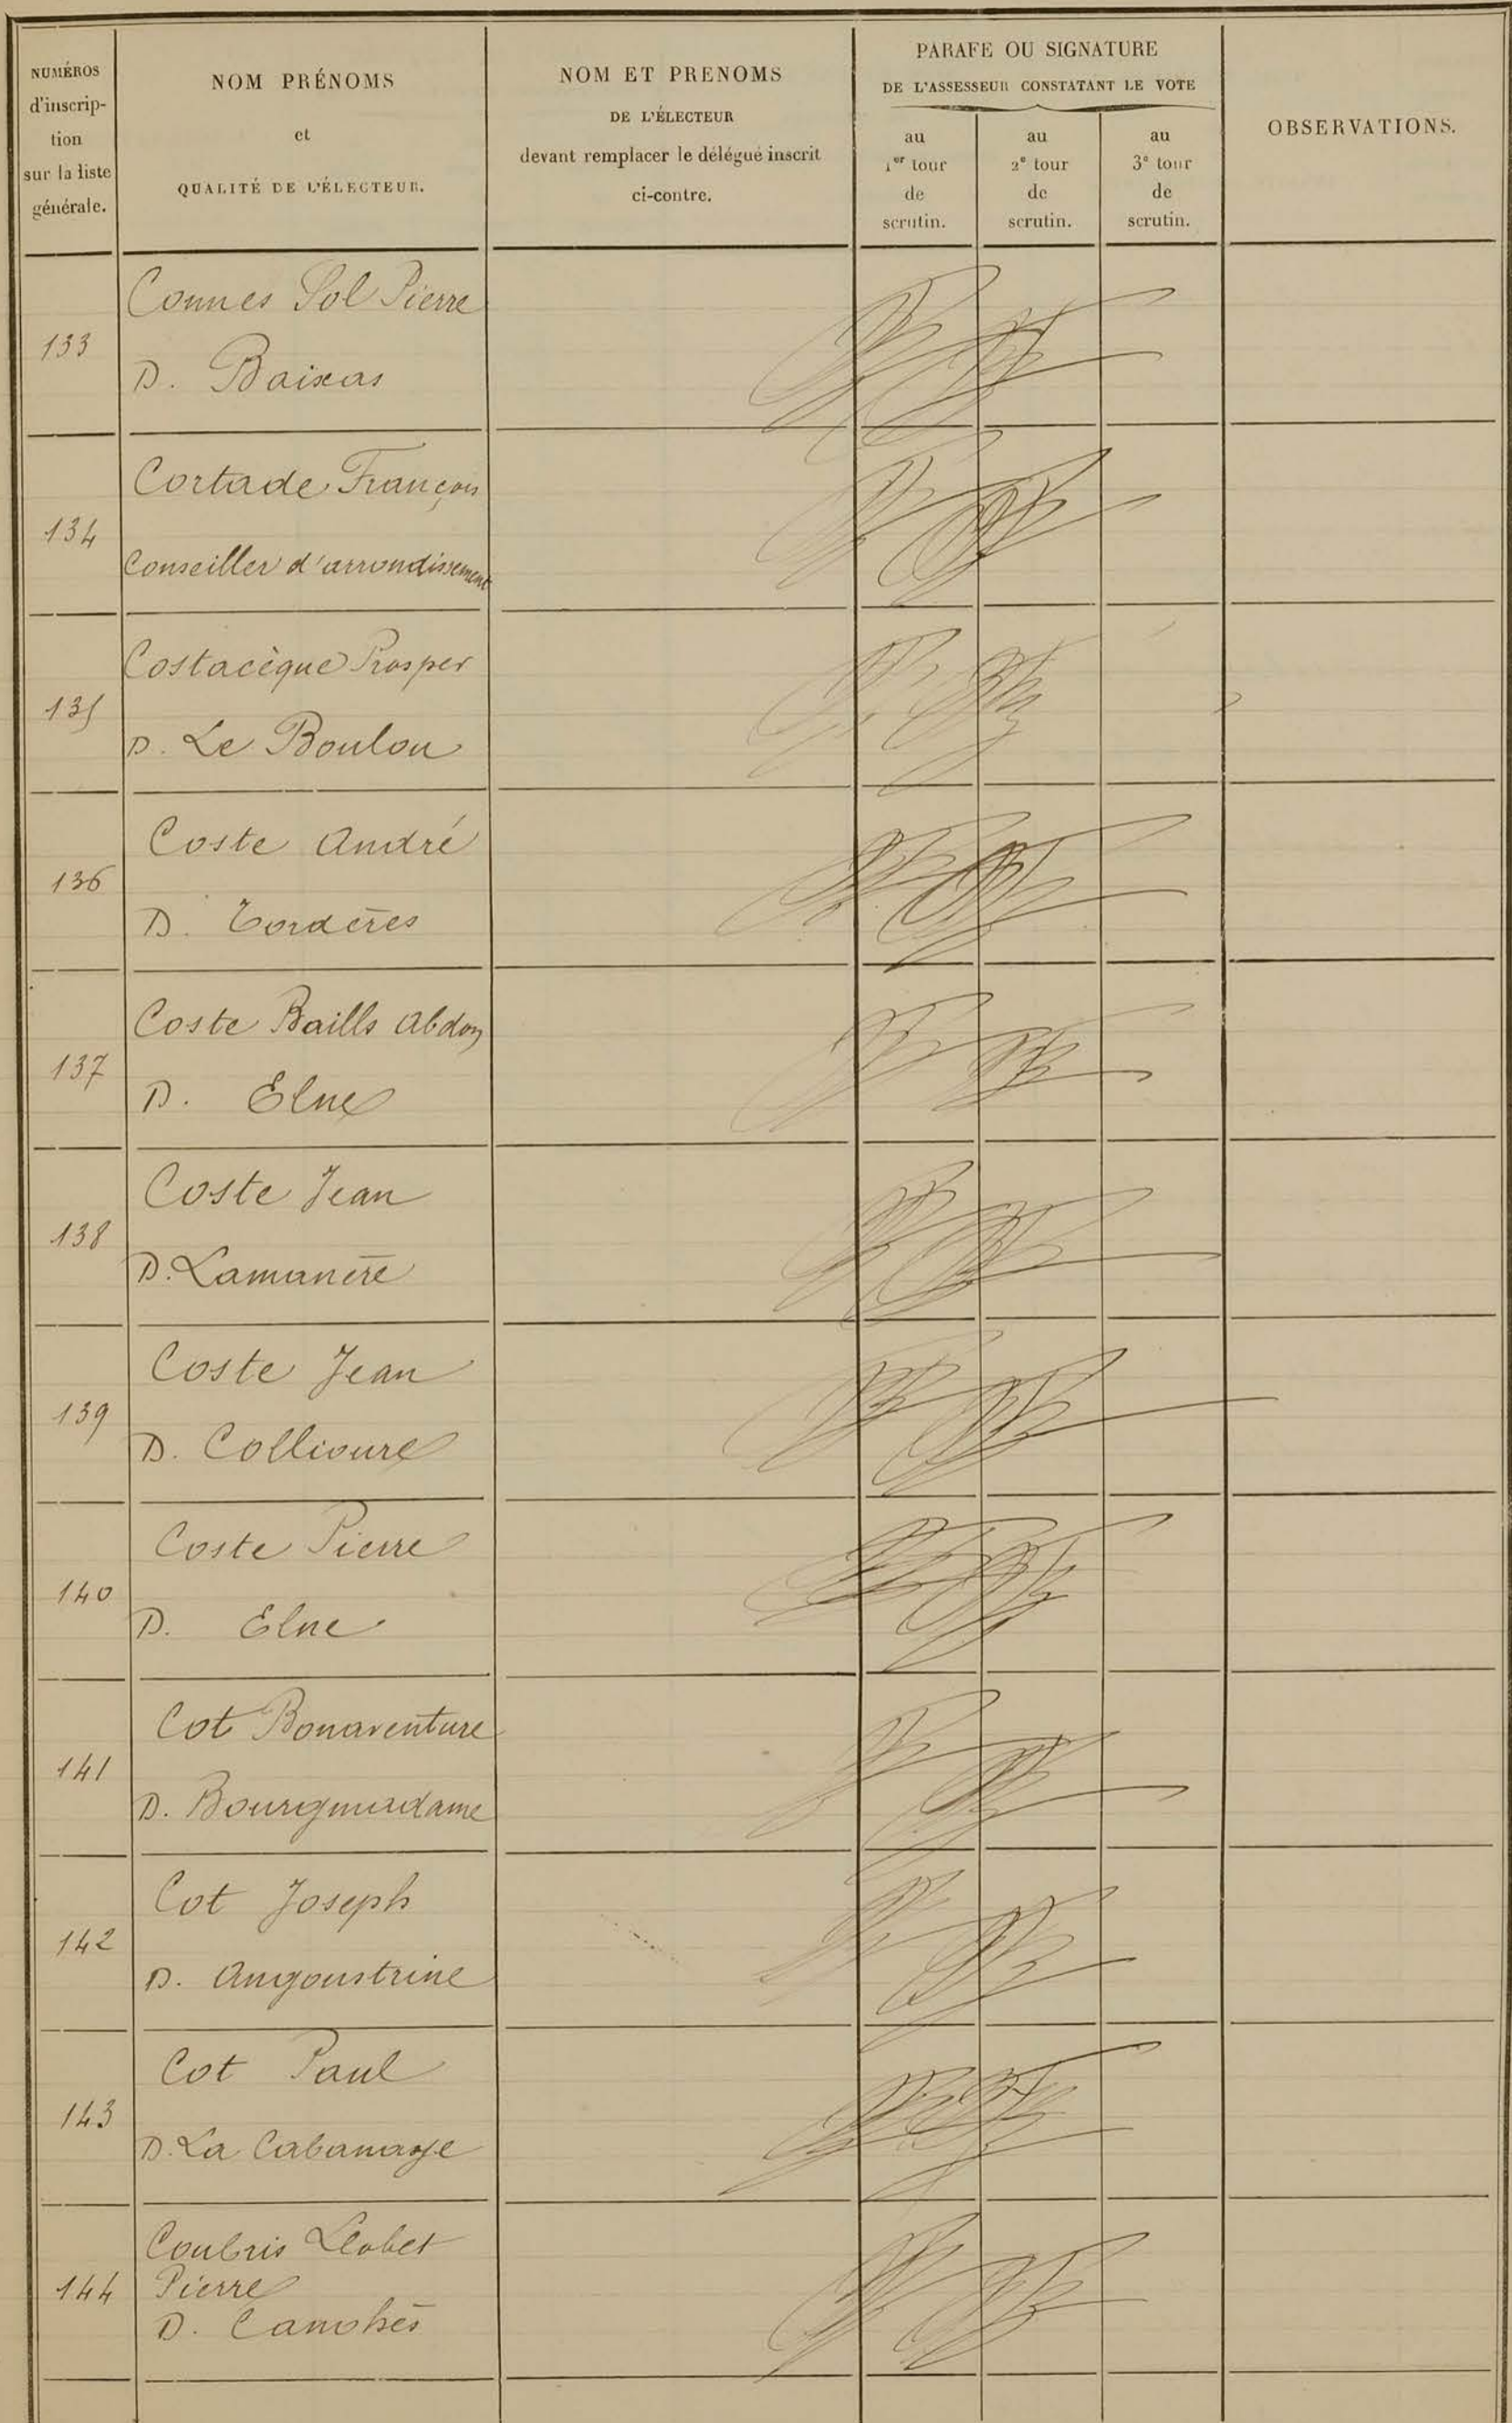 NUMÉROS
d'inscrip-
tion
sur la liste
générale.
NOM PRÉNOMS
et
QUALITÉ DE L'ÉLECTEUR.
NOM ET PRENOMS
DE L'ÉLECTEUR
devant remplacer le délégué inscrit
ci-contre.
PARAFE OU SIGNATURE
DE L'ASSESSEUR CONSTATANT LE VOTE
au
1er tour
de
scrutin.
au
2e tour
de
scrutin.
au
3e tour
de
scrutin.
OBSERVATIONS.
133
Connes Sol Pierre
D. Baixas
134
Cortade François
Conseiller d'arrondissement
135
Costacèque Prosper
D. Le Boulou
136
Coste André
D. Tordères
137
Coste Baills Abdon
D. Elne
138
Coste Jean
D. Lamanère
139
Coste Jean
D. Collioure
140
Coste Pierre
D. Elne
141
Cot Bonaventure
D. Bourgmadame
142
Cot Joseph
D. Angoustrine
143
Cot Paul
D. La Cabanasse
144
Coubris Llobet
Pierre
D. Camohès